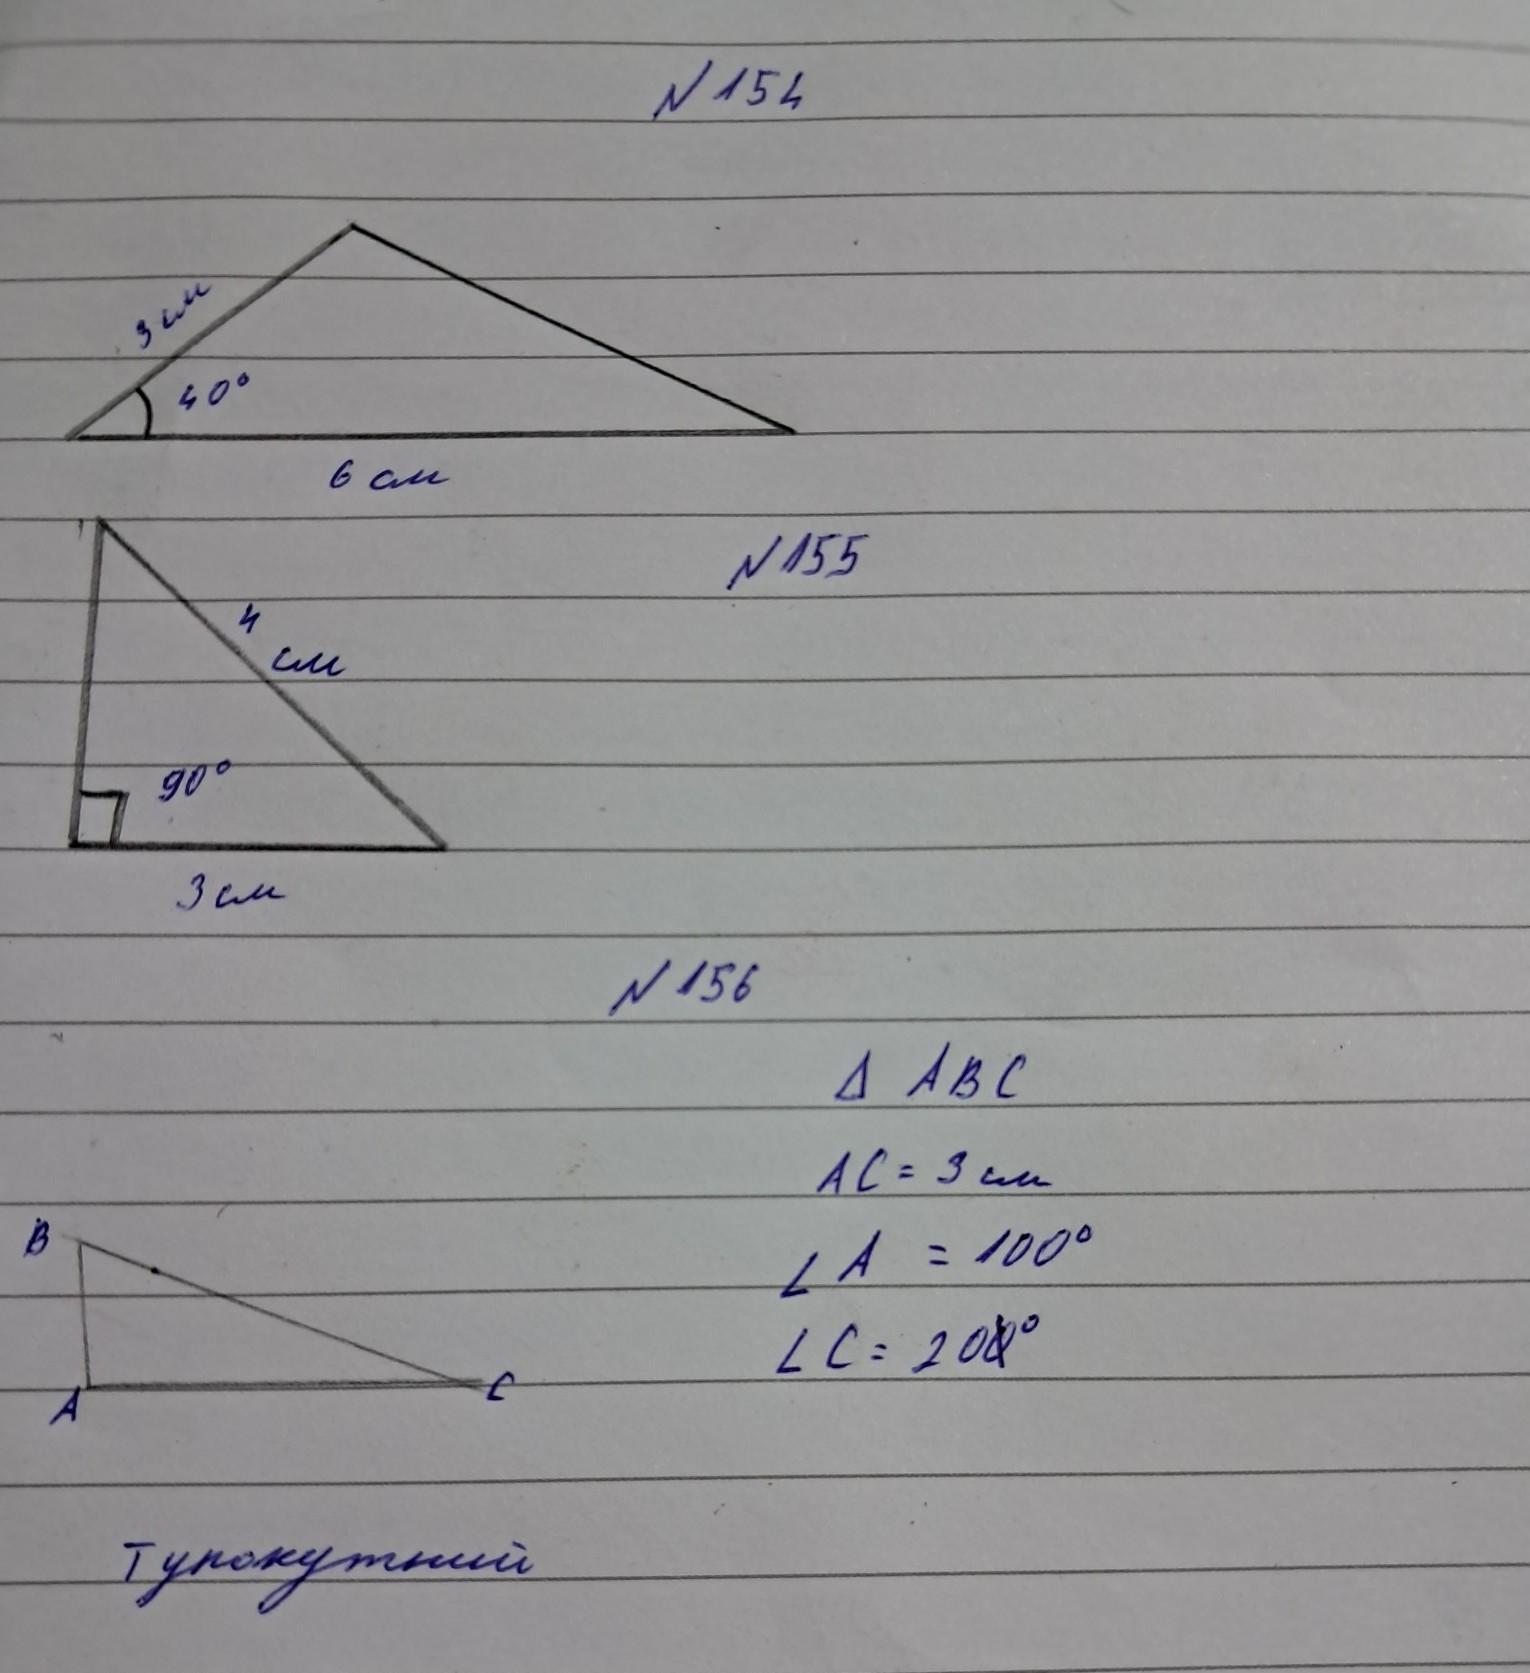 N154
3 см
40°
6 см
N155
4
см
90°
3 см
N156
Δ ABC
AC = 3 см
∠A = 100°
B
∠C = 20°
A
C
Тупокутний